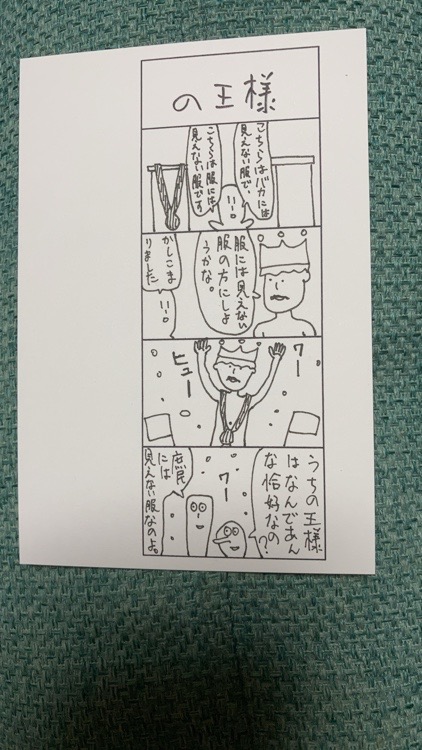 の王様
こちらはバカには
見えない服で、
こちらは服には
見えない服です。
服には見えない
服の方にしよ
うかな。
かしこま
りました
ワー
ヒュー
うちの王様
はなんであん
な恰好なの?
ワー
庶民
には
見えない服なのよ。